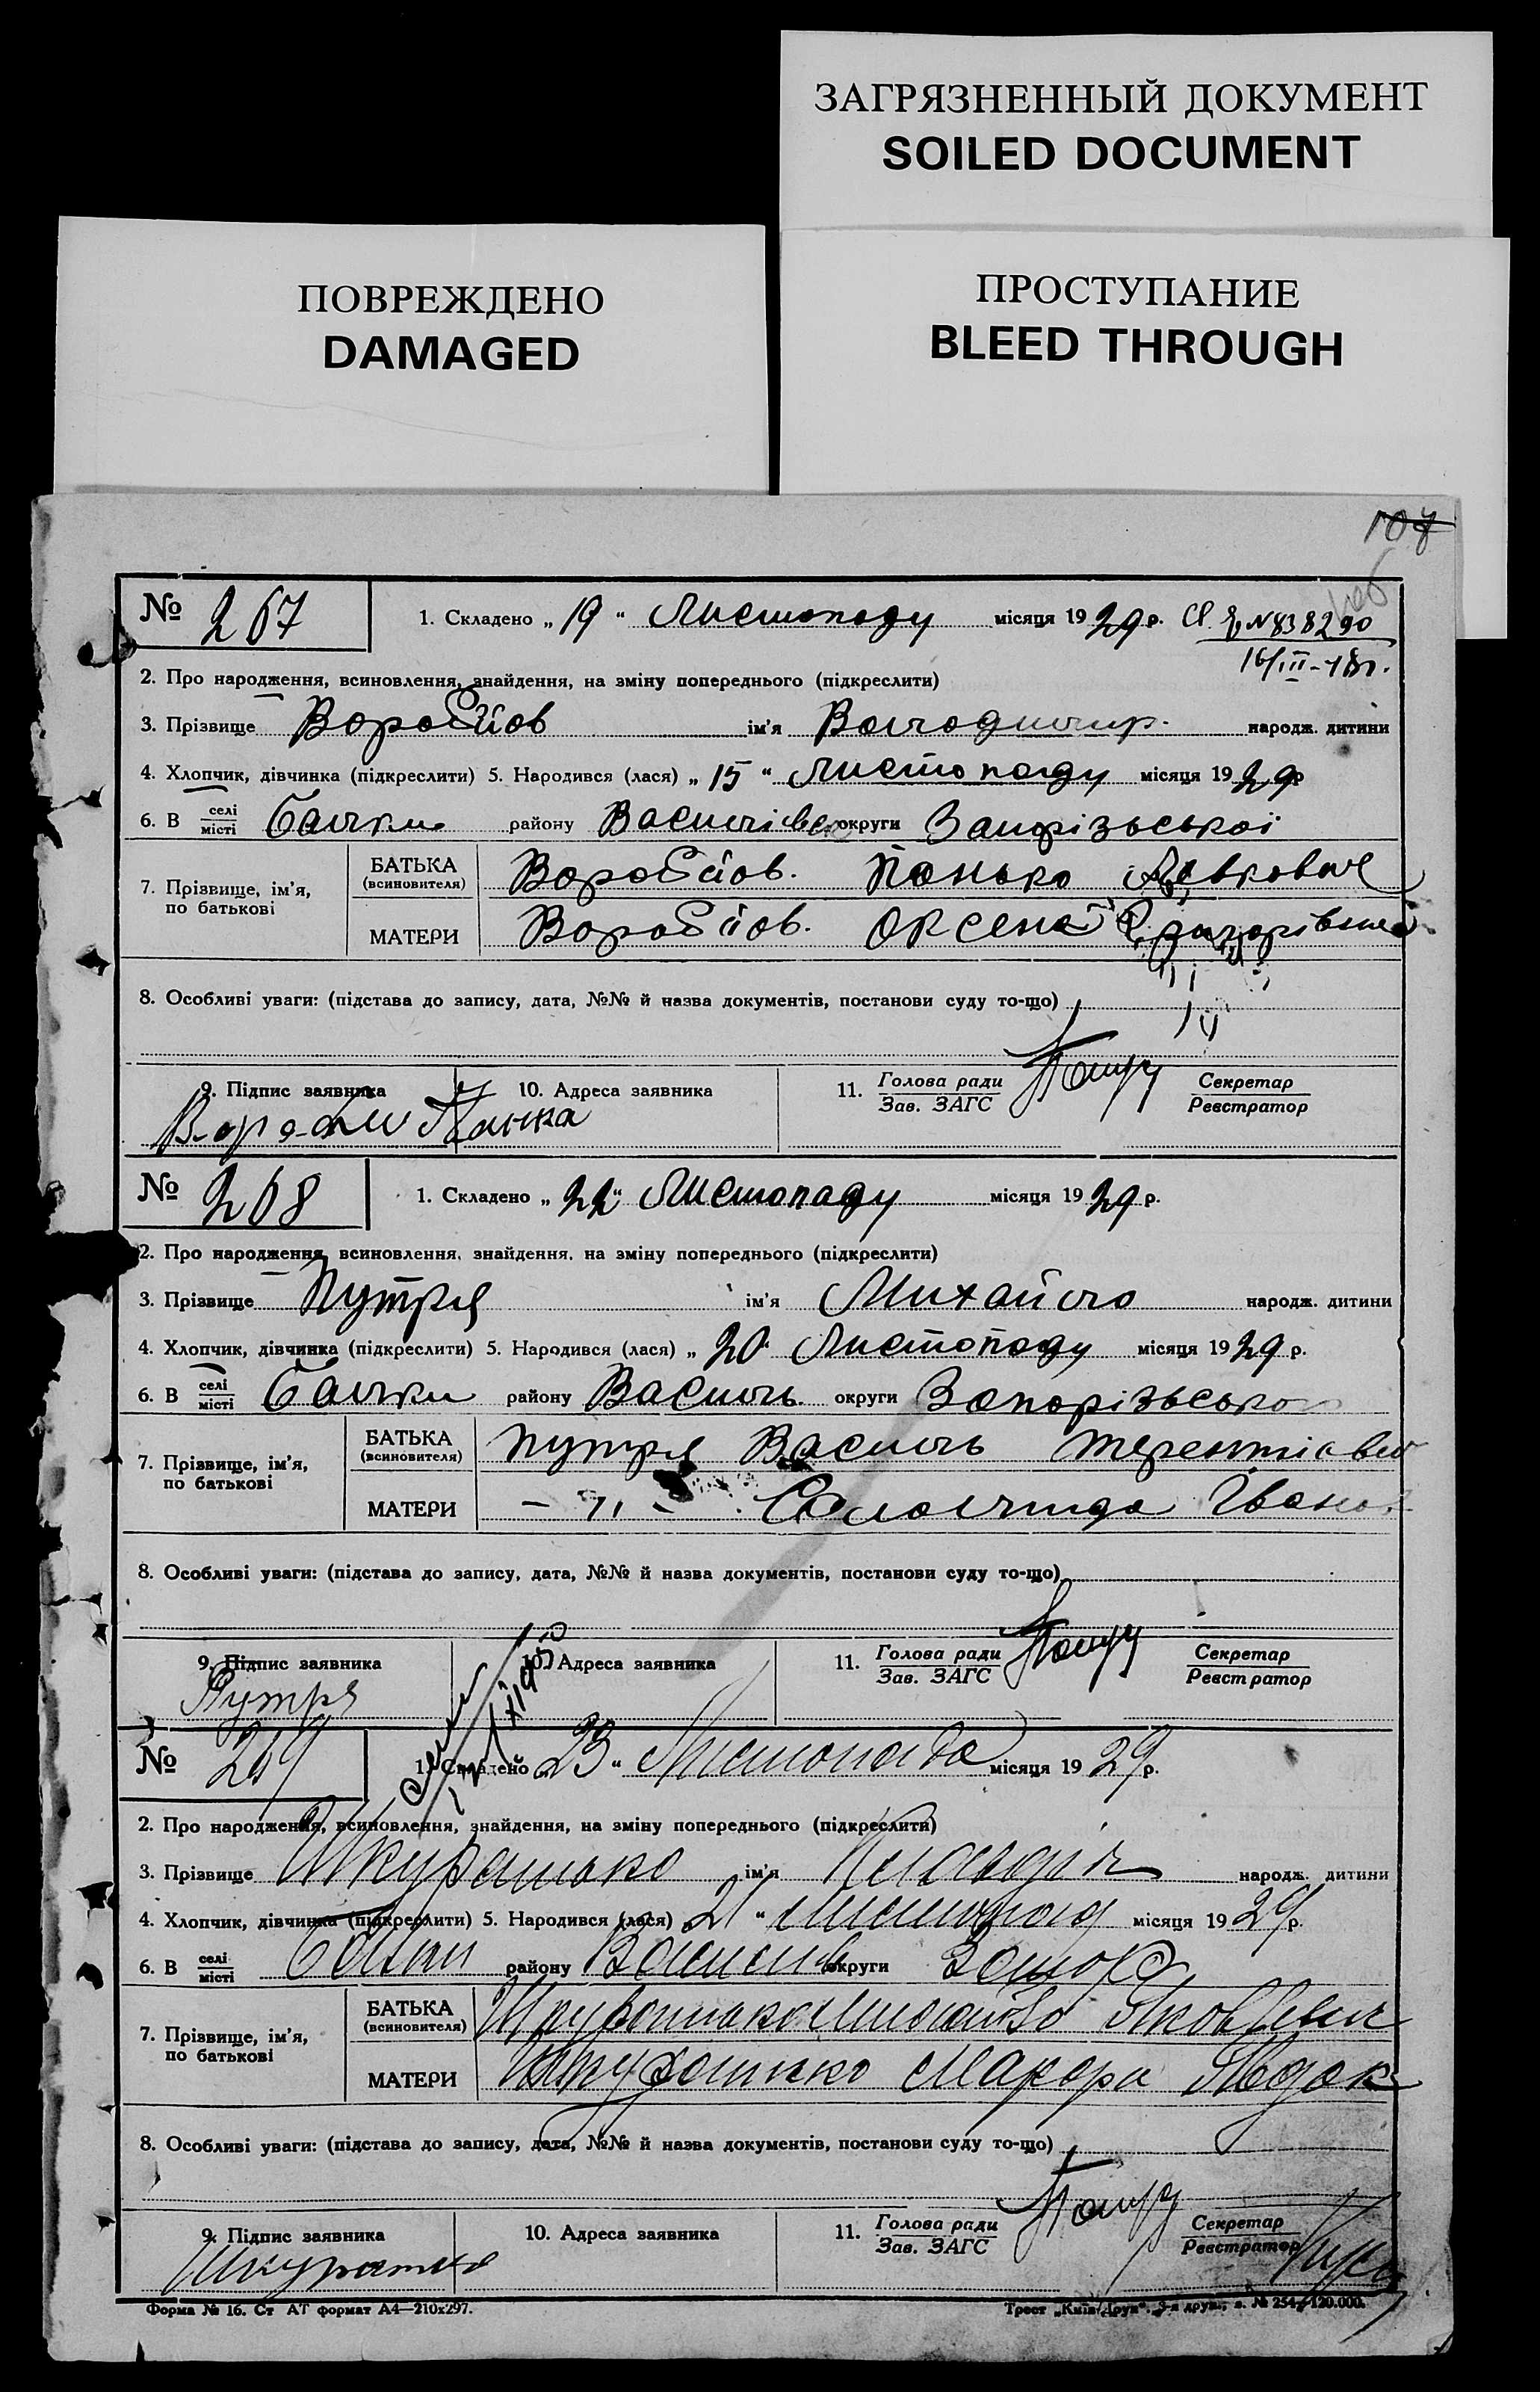 ЗАГРЯЗНЕННЫЙ ДОКУМЕНТ
SOILED DOCUMENT
ПОВРЕЖДЕНО
DAMAGED
ПРОСТУПАНИЕ
BLEED THROUGH
107
№ 267 1. Складено „19“ Листопаду місяця 1929 р.
2. Про народження, всиновлення, знайдення, на зміну попереднього (підкреслити)
3. Прізвище Воробйов ім'я Володимир народж. дитини
4. Хлопчик, дівчинка (підкреслити) 5. Народився (лася) „15“ Листопаду місяця 1929 р
6. В селі/місті Балки району Василівськ округи Запорізьської
7. Прізвище, ім'я, по батькові
БАТЬКА (всиновителя) Воробйов. Панько Левкович
МАТЕРИ Воробйов. Оксена Григорівна
8. Особливі уваги: (підстава до запису, дата, №№ й назва документів, постанови суду то-що)
9. Підпис заявника 10. Адреса заявника 11. Голова ради/Зав. ЗАГС Секретар/Реєстратор
Панка
№ 268 1. Складено „22“ Листопаду місяця 1929 р.
2. Про народження, всиновлення, знайдення, на зміну попереднього (підкреслити)
3. Прізвище Путря ім'я Михайло народж. дитини
4. Хлопчик, дівчинка (підкреслити) 5. Народився (лася) „20“ Листопаду місяця 1929 р.
6. В селі/місті Балки району Василь. округи Запорізьсько
7. Прізвище, ім'я, по батькові
БАТЬКА (всиновителя) Путря Василь Терентієв
МАТЕРИ — 71 — Іванов
8. Особливі уваги: (підстава до запису, дата, №№ й назва документів, постанови суду то-що)
9. Підпис заявника 10. Адреса заявника 11. Голова ради/Зав. ЗАГС Секретар/Реєстратор
Путря
№ 269 1. Складено „23“ Листопада місяця 1929 р.
2. Про народження, всиновлення, знайдення, на зміну попереднього (підкреслити)
3. Прізвище Шкуратько ім'я народж. дитини
4. Хлопчик, дівчинка (підкреслити) 5. Народився (лася) „21“ Листопад місяця 1929 р.
6. В селі/місті Балки району Василів округи Запор
7. Прізвище, ім'я, по батькові
БАТЬКА (всиновителя) Яковлевич
МАТЕРИ Шкуратько
8. Особливі уваги: (підстава до запису, дата, №№ й назва документів, постанови суду то-що)
9. Підпис заявника 10. Адреса заявника 11. Голова ради/Зав. ЗАГС Секретар/Реєстратор
Шкуратько
Форма № 16. Ст АТ формат А4—210х297. Трест „Київ-Друк“, 3-я друк., з. № 254—120.000.